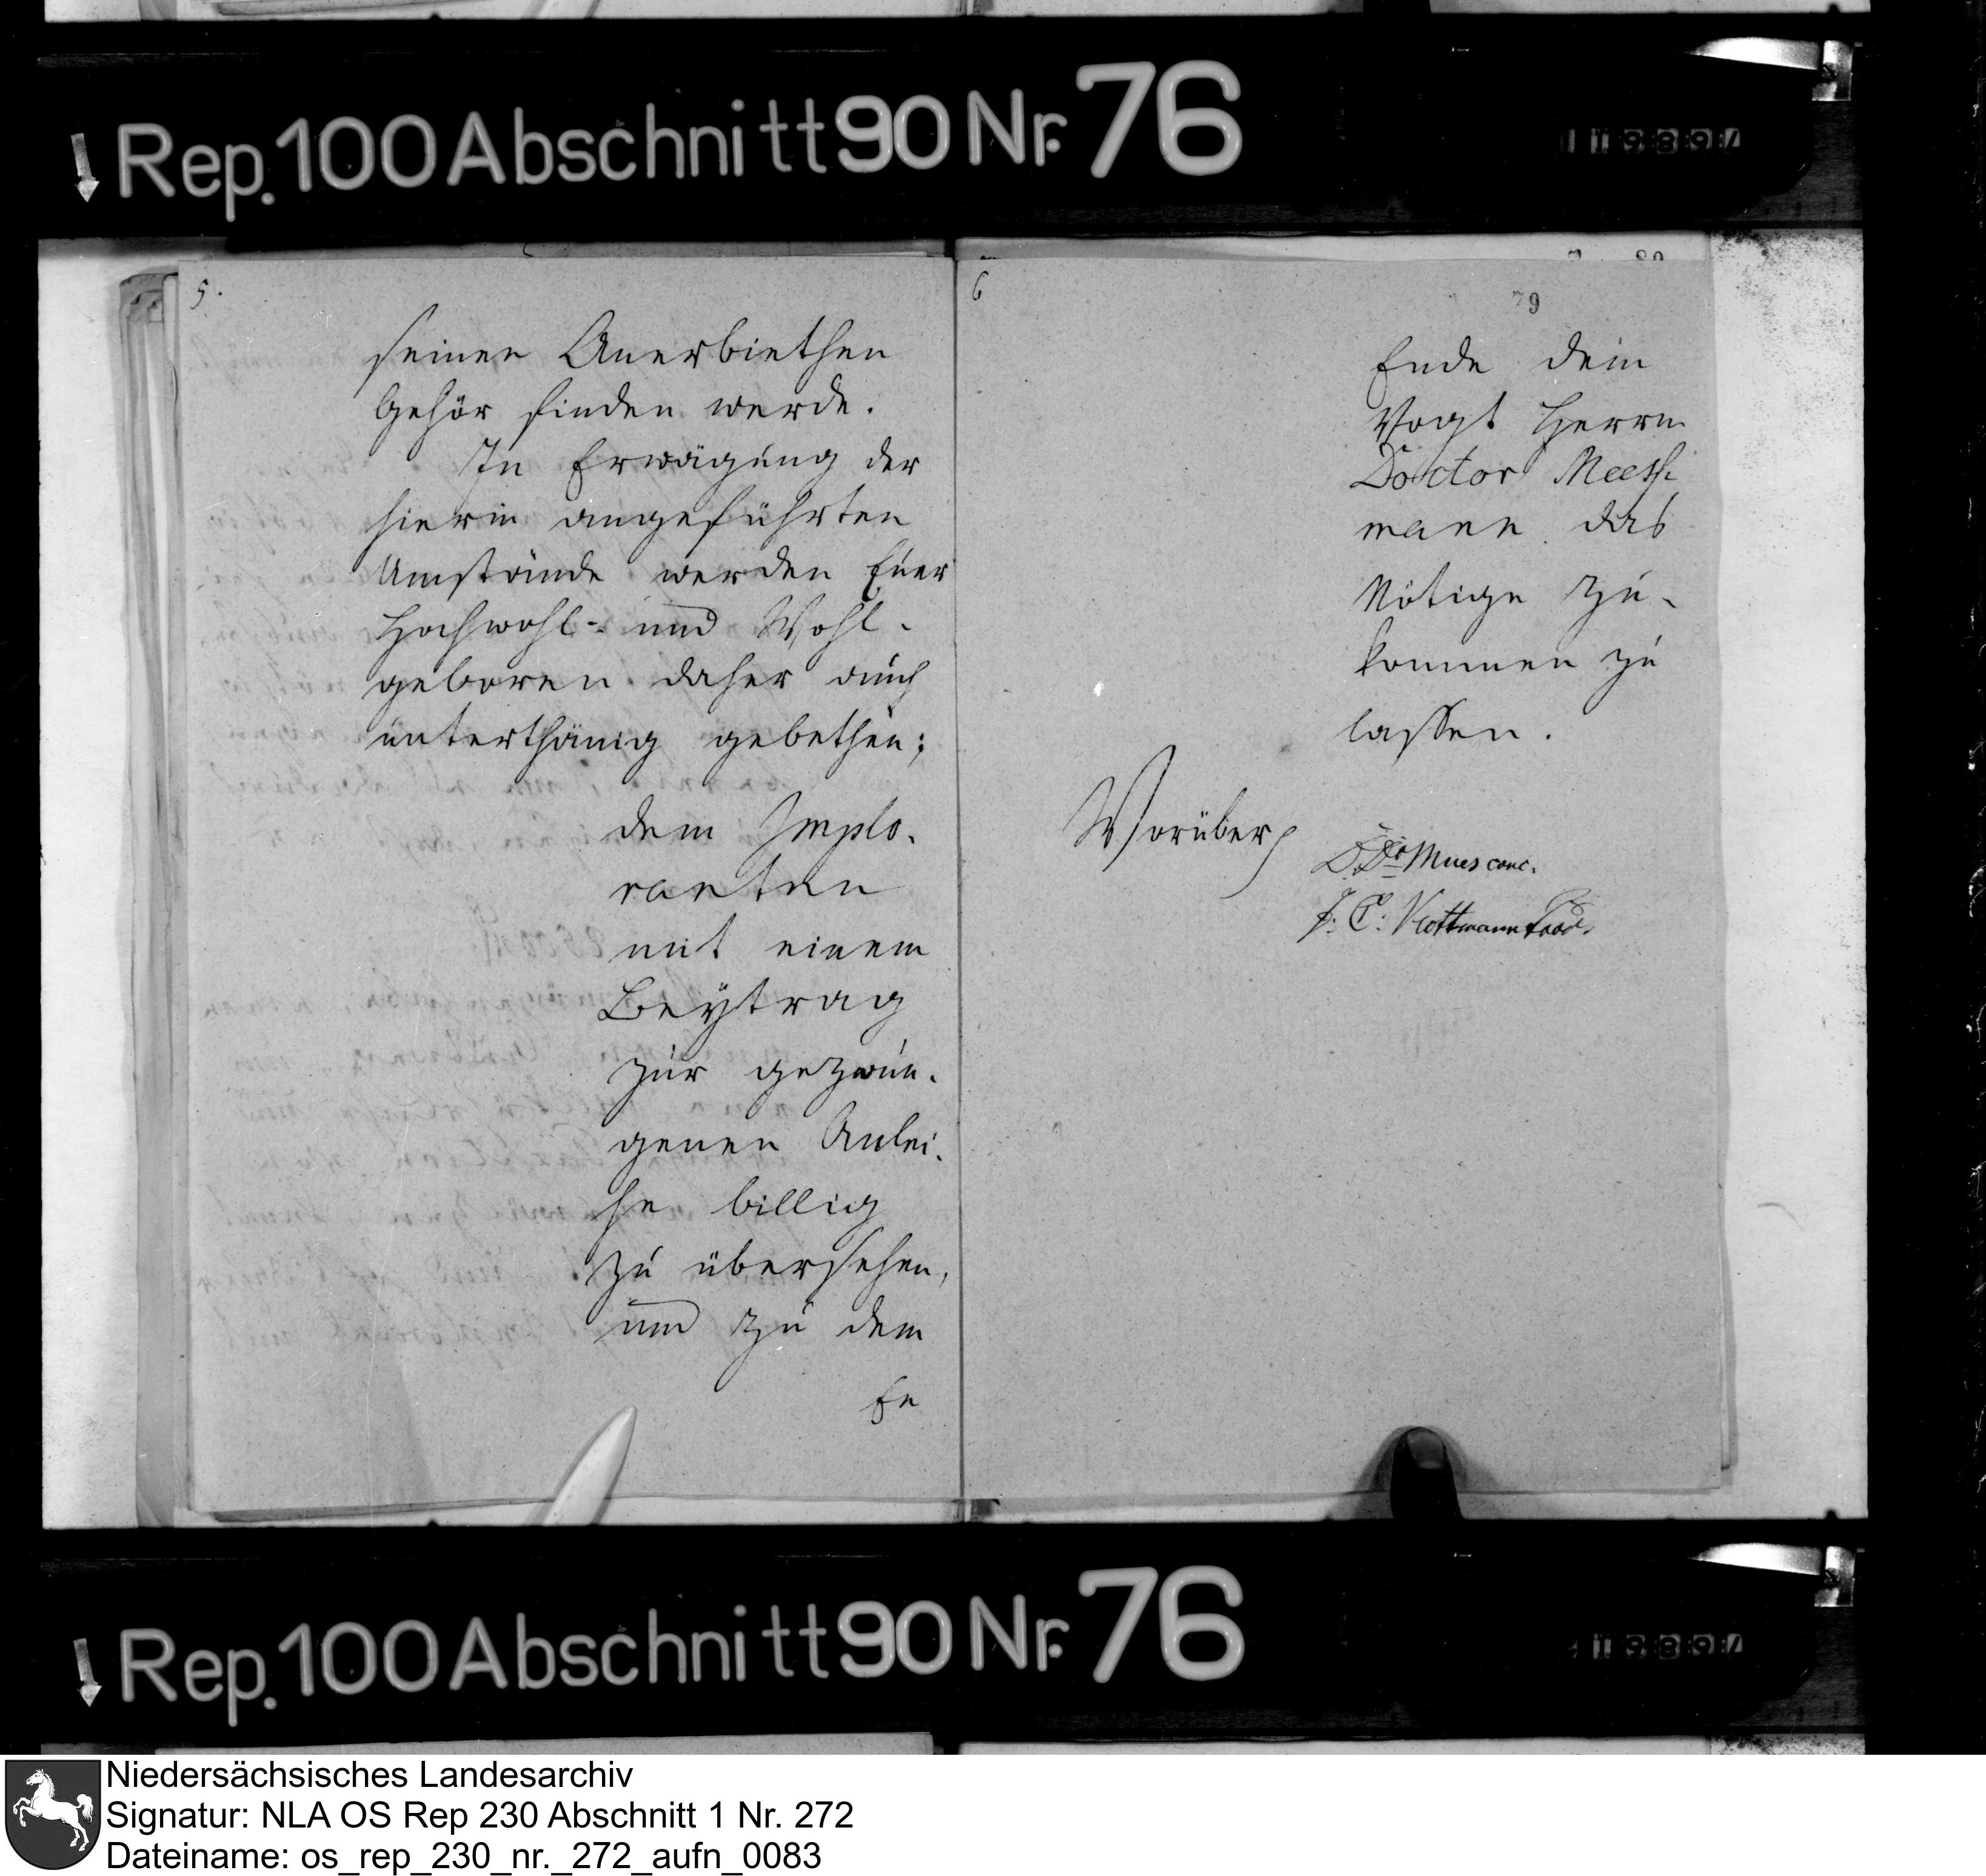 Rep. 100 Abschnitt 90 Nr. 76
5.
seinen Anerbiethen
Gehör finden werde.
In Erwägung der
hierin angeführten
Umstände werden Euer
Hochwohl- und Wohl-
geboren daher auch
unterthänig gebethen;
dem Implo-
ranten
mit einem
Beytrag
zur gezwun-
genen Anlei-
he billig
zu übersehen,
und zu dem
En
6
79
Ende dem
Vogt Herrn
Doctor
mann das
Nötige zu-
kommen zu
lassen.
Worüber
conc.
J. C.
Rep. 100 Abschnitt 90 Nr. 76
Niedersächsisches Landesarchiv
Signatur: NLA OS Rep 230 Abschnitt 1 Nr. 272
Dateiname: os_rep_230_nr._272_aufn_0083